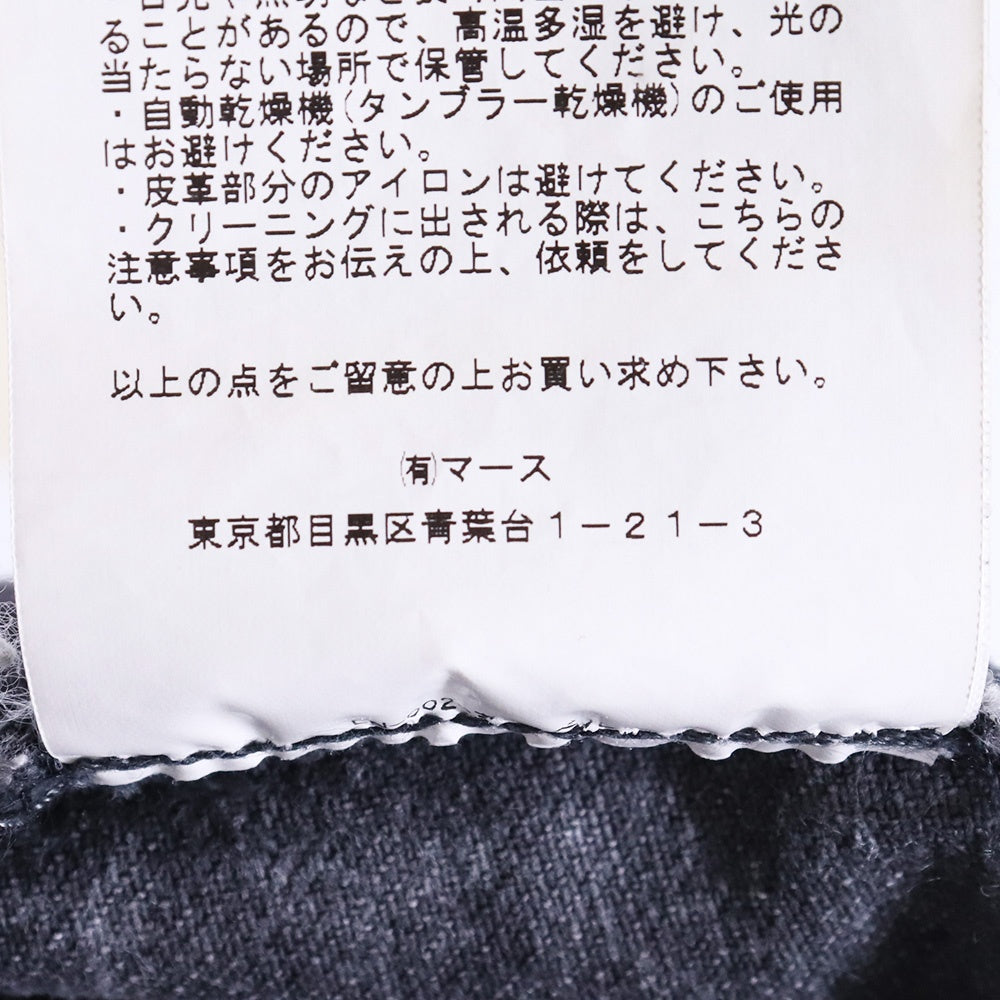 ることがあるので、高温多湿を避け、光の
当たらない場所で保管してください。
・自動乾燥機(タンブラー乾燥機)のご使用
はお避けください。
・皮革部分のアイロンは避けてください。
・クリーニングに出される際は、こちらの
注意事項をお伝えの上、依頼をしてくださ
い。
以上の点をご留意の上お買い求め下さい。
㈲マース
東京都目黒区青葉台1-21-3